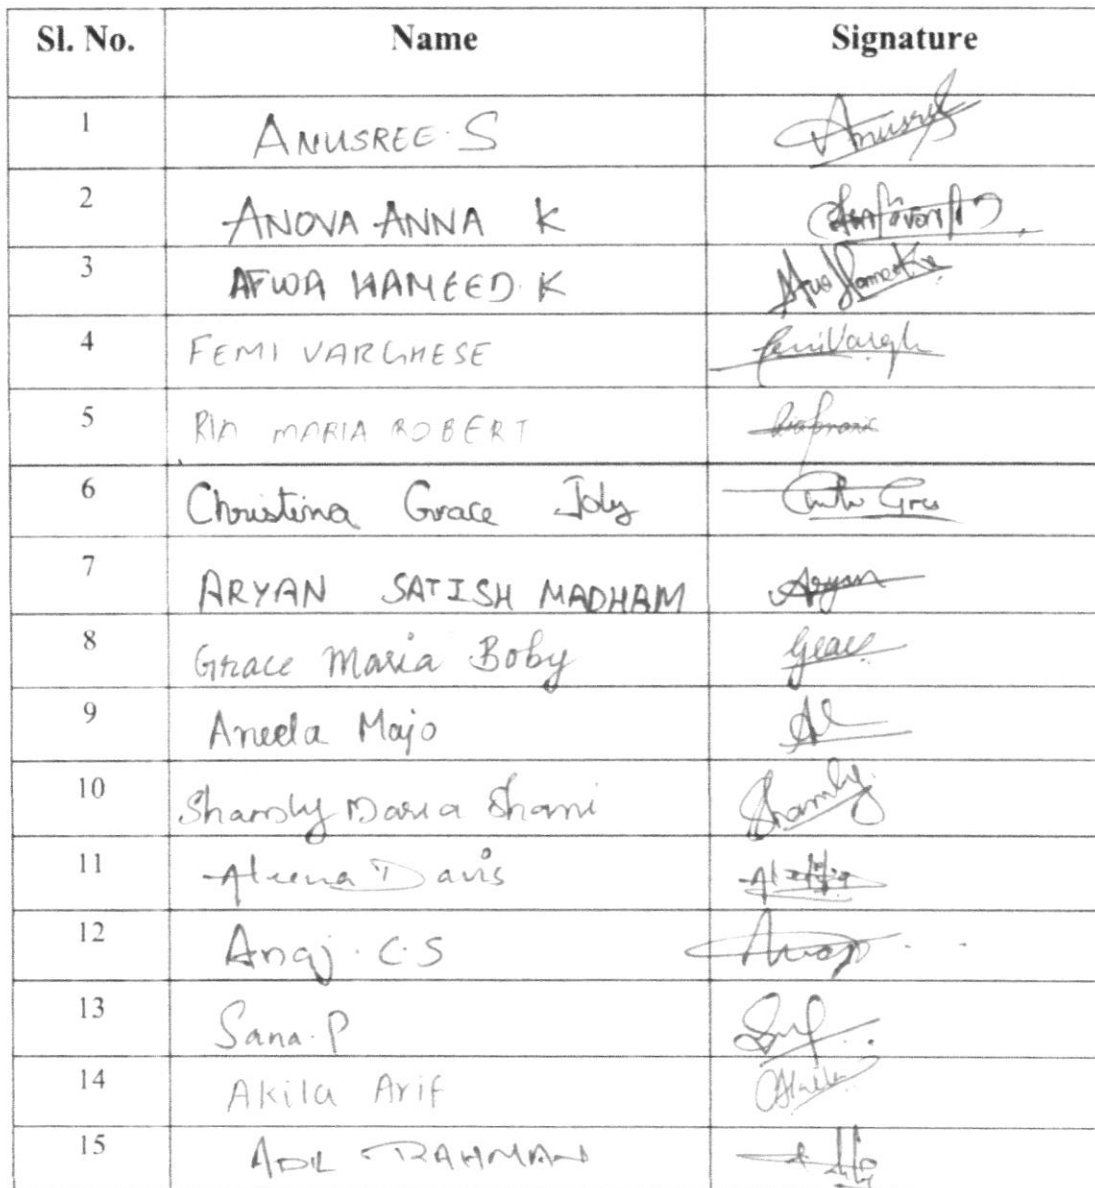 Sl. No. Name Signature
1 ANUSREE. S Anusree
2 ANOVA ANNA K
3 AFWA HAMEED. K Afwa Hameed K
4 FEMI VARGHESE Femi Vargh
5 RIA MARIA ROBERT
6 Christina Grace Joly
7 ARYAN SATISH MADHAM Aryan
8 Grace Maria Boby Grace
9 Aneela Majo
10 Shamly Maria Shani Shamly
11 Aleena Davis
12 Anaj. C.S
13 Sana. P
14 Akila Arif Akila
15 ADIL RAHMAN